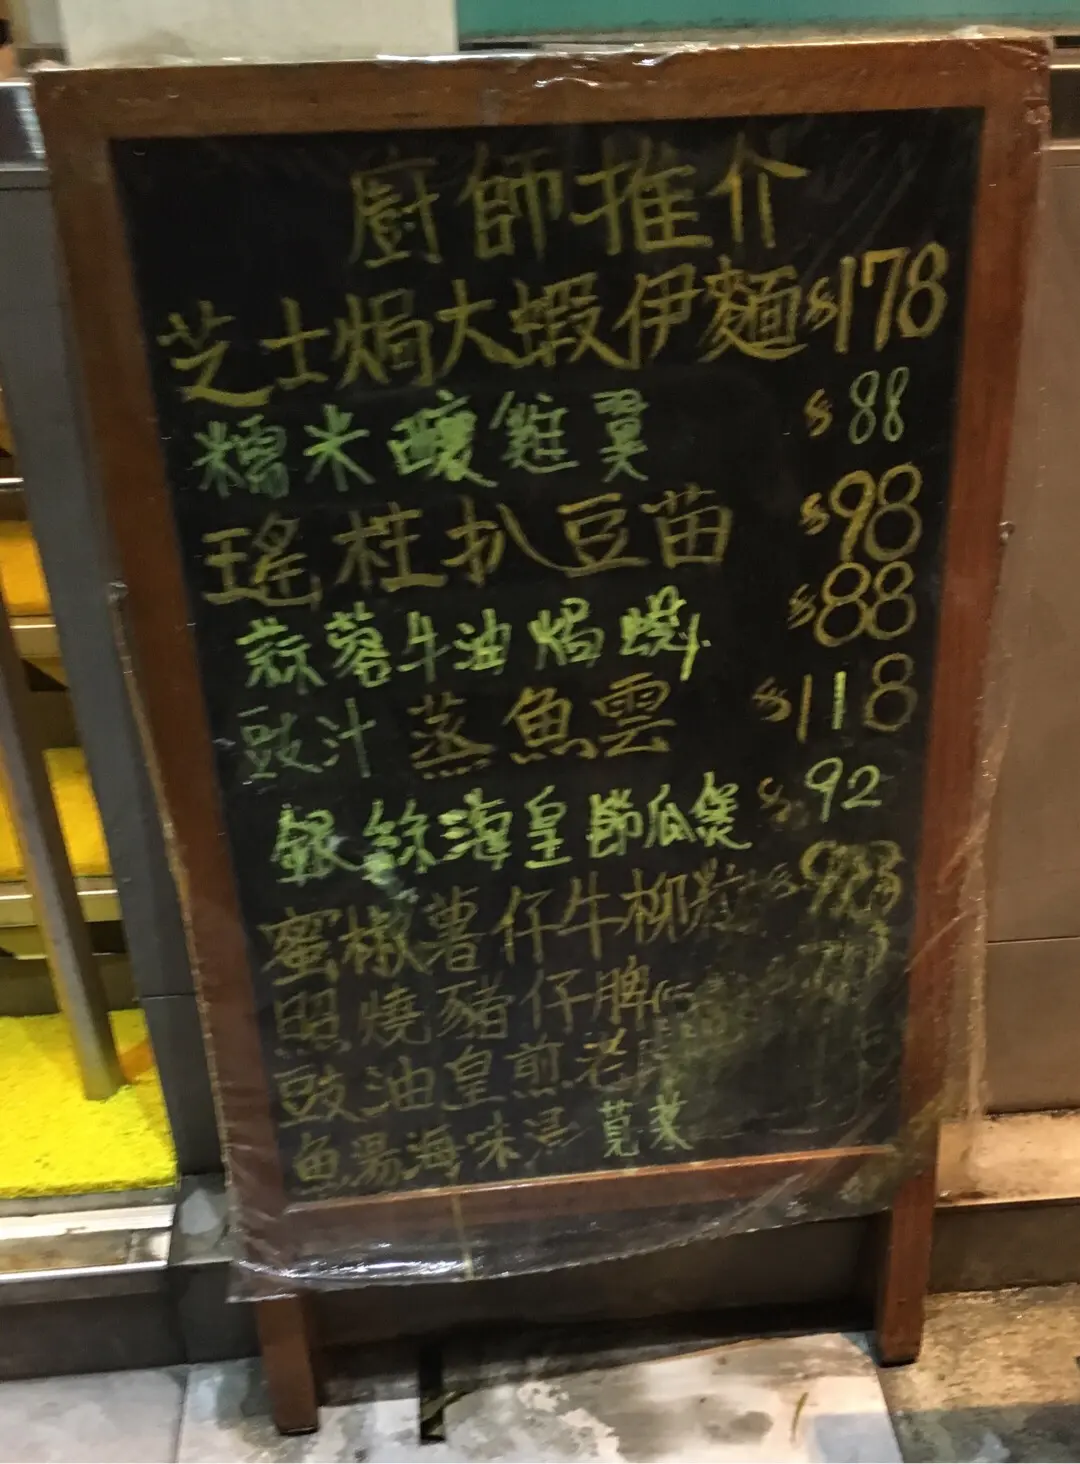 廚師推介
芝士焗大蝦伊麵 $178
糯米釀雞翼 $88
瑤柱扒豆苗 $98
蒜蓉牛油焗 $88
豉汁蒸魚雲 $118
銀絲海皇節瓜煲 $92
蜜椒薯仔牛柳粒
照燒豬仔脾
豉油皇煎老
魚湯海味浸莧菜